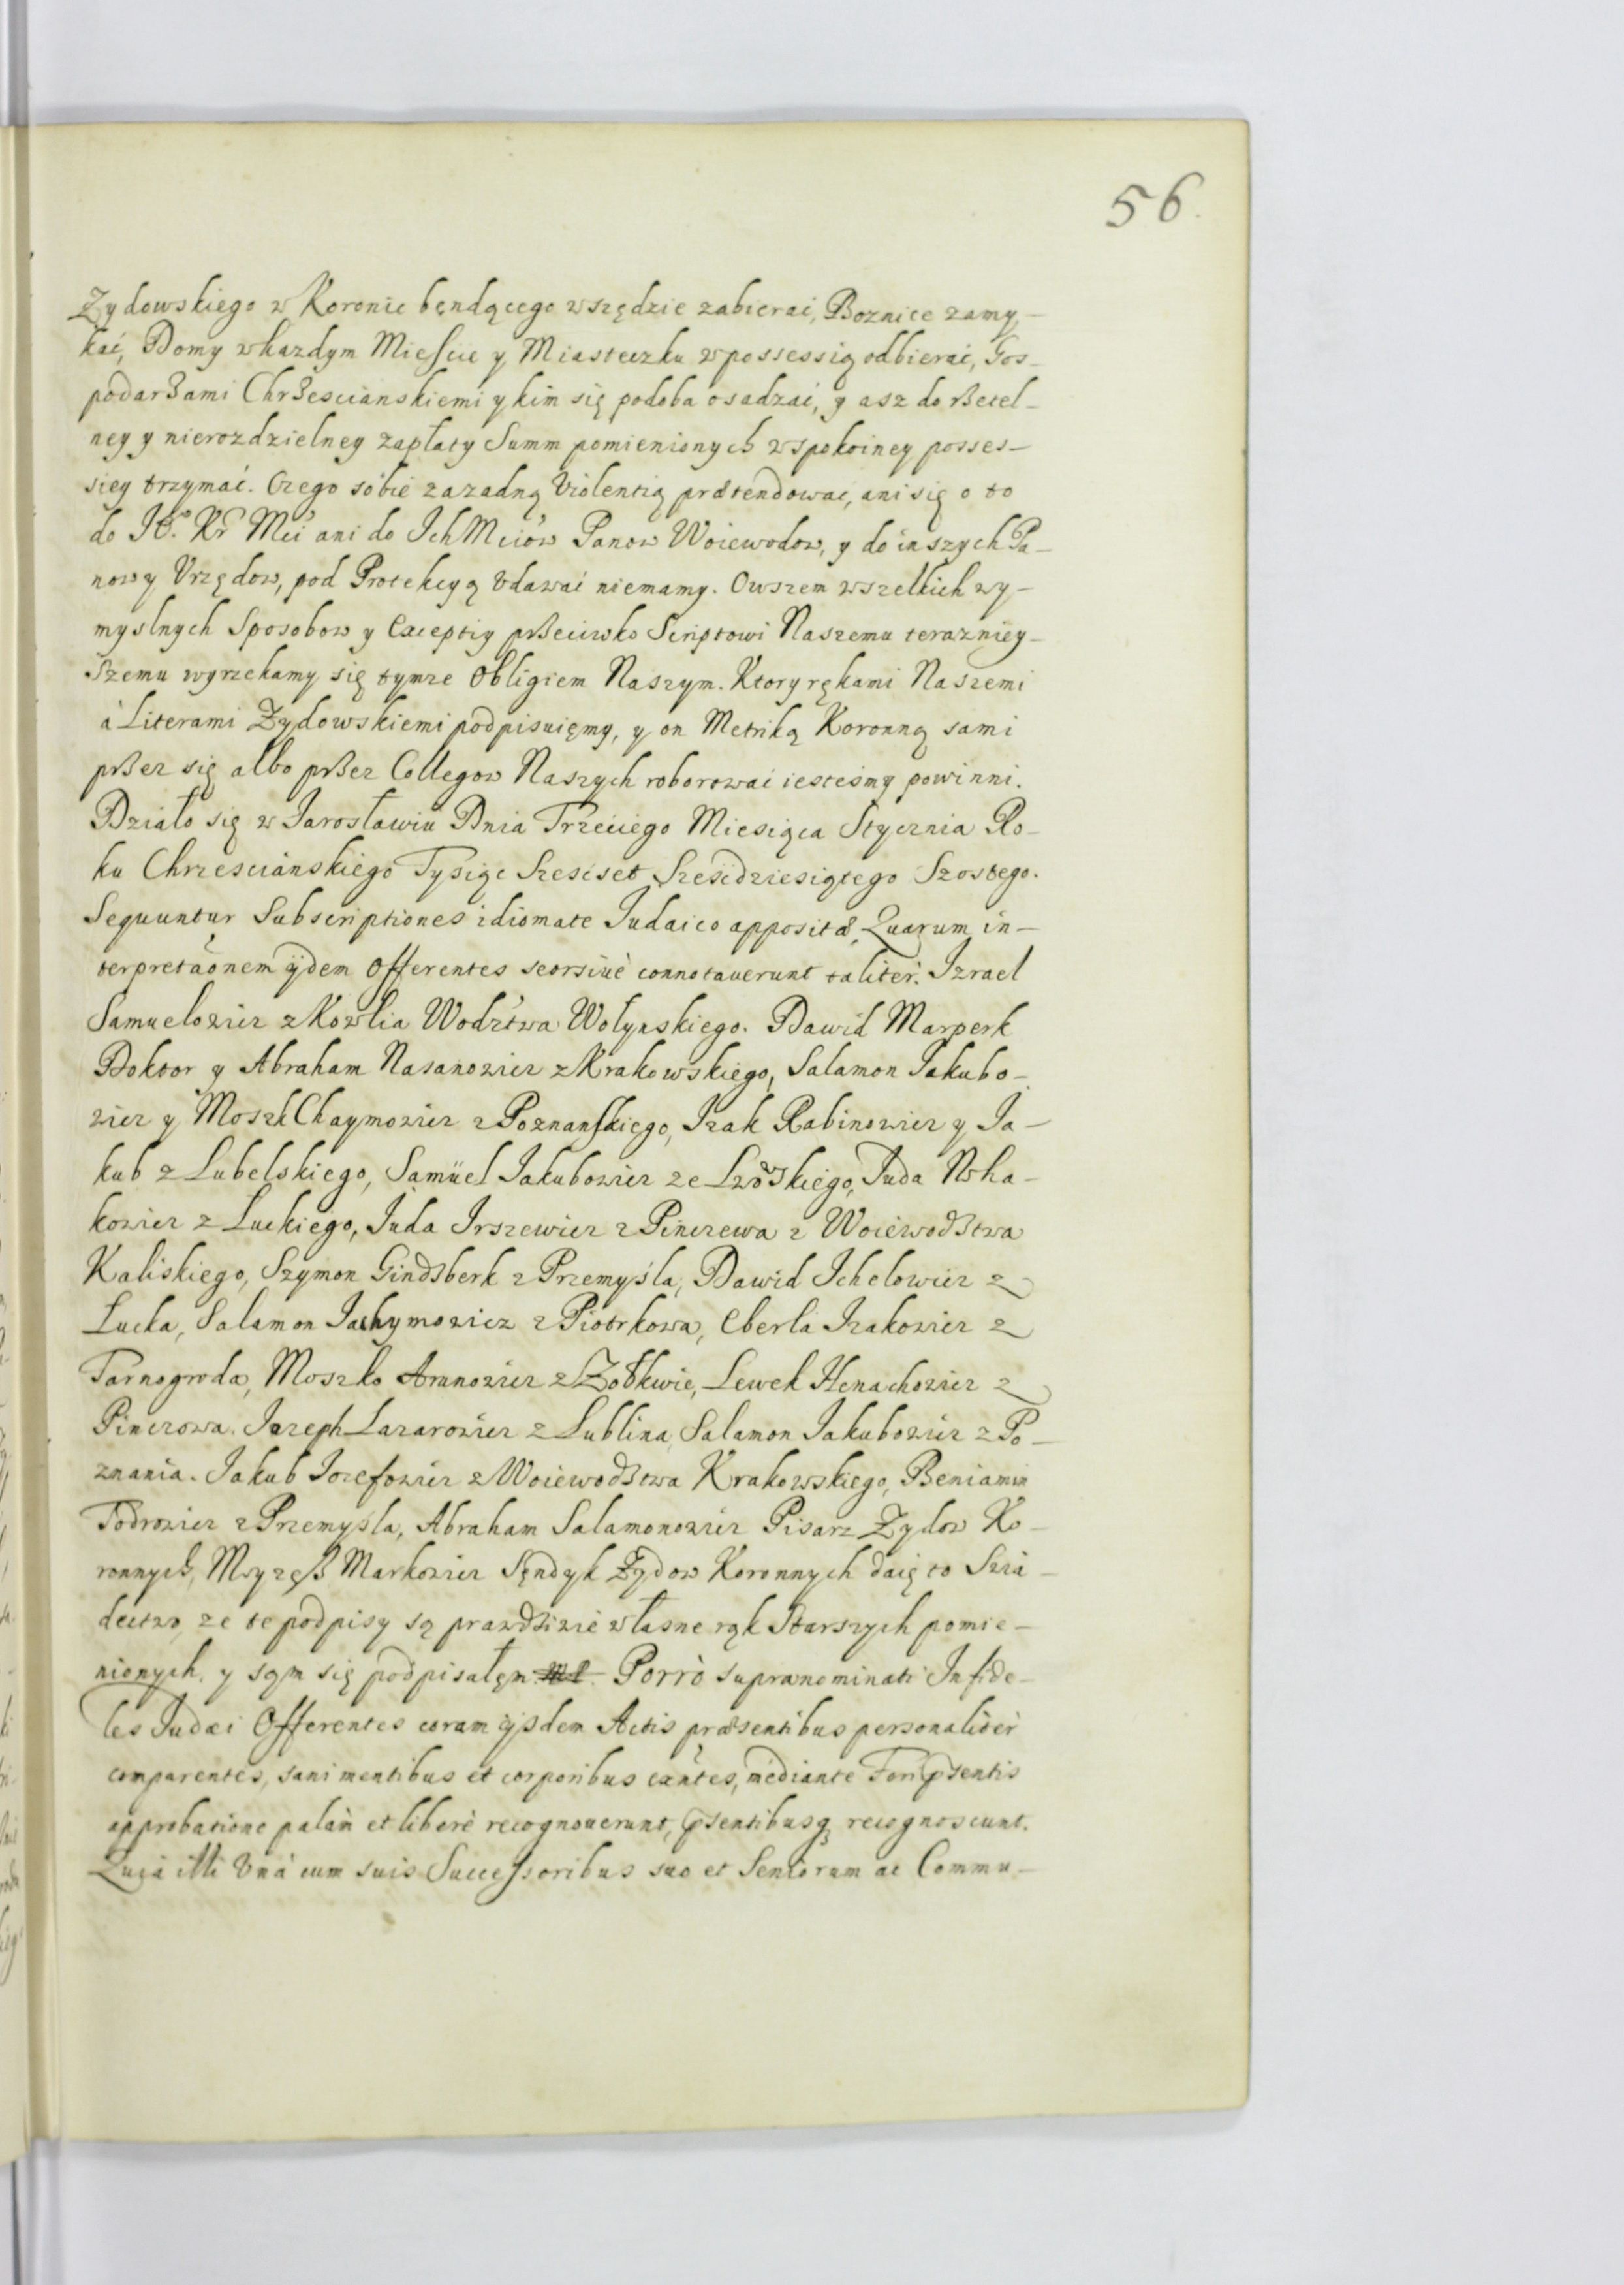 56.
Zydowskiego w Koronie będącego wszędzie zabierać, Boznice zamy-
kać, Domy w kazdym Mieście y Miasteczku w possessią odbierać, Gos-
podarzami Chrzescianskiemi y kim się podoba osadzać, y asz do rzetel-
ney y nierozdzielney zapłaty Summ pomienionych w spokoiney posses-
siey trzymać. Czego sobie za zadną Violentią prætendować, ani się o to
do JKº. Kr Mći ani do Ich Mciow Panow Woiewodow, y do inszych Pa-
now y Vrzędow, pod Protekcyą Vdawać niemamy. Owszem wszelkich wy-
myslnych Sposobow y Exceptiy przeciwko Scriptowi Naszemu terazniey-
szemu wyrzekamy się tymze Obligiem Naszym. Ktory rękami Naszemi
à Literami Zydowskiemi podpisuięmy, y on Metriką Koronną sami
przez się albo przez Collegow Naszych roborować iesteśmy powinni.
Działo się w Jarosławiu Dnia Trzeciego Miesiąca Stycznia Ro-
ku Chrzescianskiego Tysiąc Szescset Sześcdziesiątego Szostego.
Sequuntur Subscriptiones idiomate Iudaico appositæ, Quarum in-
terpretaõnem ijdem Offerentes seorsiuè connotauerunt taliter. Izrael
Samuelowicz z Kowlia Wodztwa Wołynskiego. Dawid Marperk
Doktor y Abraham Nasanowicz z Krakowskiego, Salamon Jakubo-
wicz y Moszk Chaymowicz z Poznanskiego, Izak Rabinowicz y Ja-
kub z Lubelskiego, Samüel Jakubowicz ze Lwowskiego, Juda
kowicz z Luckiego, Juda Irszewicz z Pinczewa z Woiewodztwa
Kaliskiego, Szymon Gindsberk z Przemyśla, Dawid Ichelowicz z
Łucka, Salamon Jachymowicz z Piotrkowa, Eberla Izakowicz z
Tarnogroda, Moszko Aranowicz z Zołkwie, Lewek Henachowicz z
Pinczowa. Jozeph Lazarowicz z Lublina, Salamon Jakubowicz z Po-
znania. Jakub Jozefowicz z Woiewodztwa Krakowskiego, Beniamin
Todrowicz z Przemyśla, Abraham Salamonowicz Pisarz Zydow Ko-
ronnych, Moyzesz Markowicz Sęndyk Zydow Koronnych daię to Swia-
dectwo, ze te podpisy są prawdziwie własne rąk Starszych pomie-
nionych. y sąm się podpisałęm. Porrò supranominati Infide-
les Judæi Offerentes coram ijsdem Actis præsentibus personaliter
comparentes, sani mentibus et corporibus exñtes, mediante Fori pSentis
approbatione palàm et liberè recognouerunt, pSentibusq recognoscunt.
Quia illi Vnà cum suis Successoribus suo et Seniorum ac Commu-